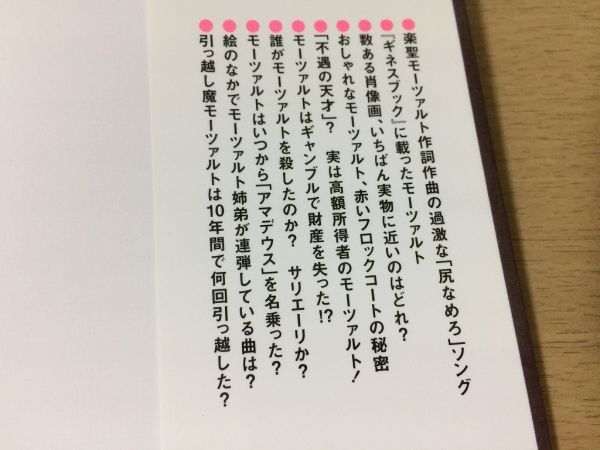 ●楽聖モーツァルト作詞作曲の過激な「尻なめろ」ソング
●『ギネスブック』に載ったモーツァルト
●数ある肖像画、いちばん実物に近いのはどれ？
●おしゃれなモーツァルト、赤いフロックコートの秘密
●「不遇の天才」？　実は高額所得者のモーツァルト！
●モーツァルトはギャンブルで財産を失った!?
●誰がモーツァルトを殺したのか？　サリエーリか？
●モーツァルトはいつから「アマデウス」を名乗った？
●絵のなかでモーツァルト姉弟が連弾している曲は？
●引っ越し魔モーツァルトは10年間で何回引っ越した？